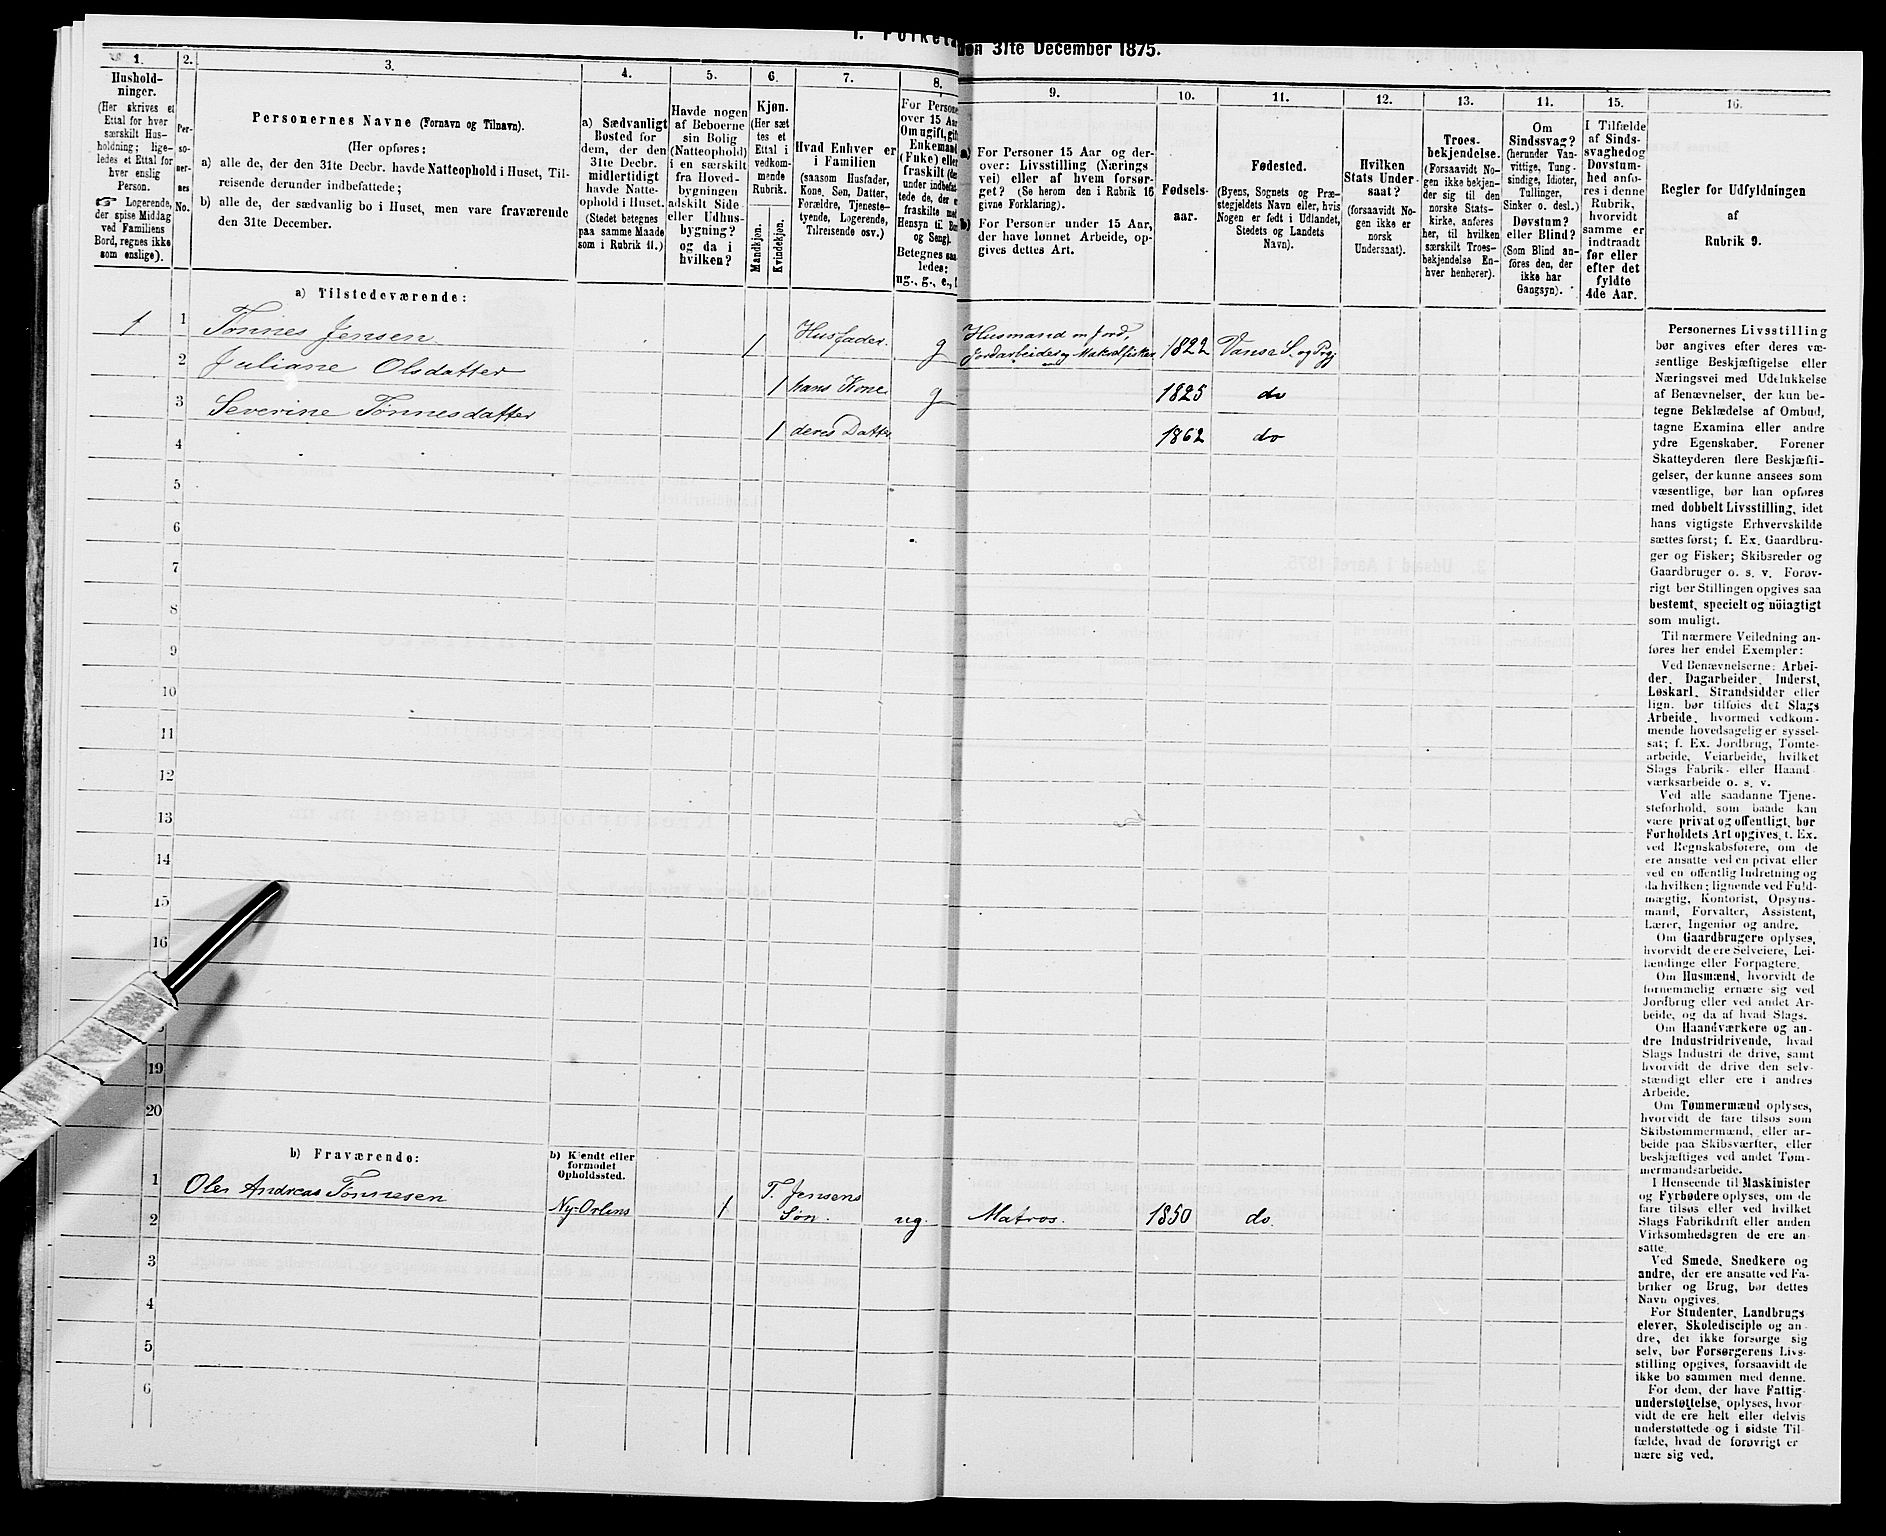 den 31te December 1875.
1.
Hushold-
ninger.
(Her skrives et
Ettal for hver
særskilt Hus-
holdning; lige-
ledes et Ettal for
hver enslig
Person.
☞ Logerende,
der spise Middag
ved Familiens
Bord, regnes ikke
som enslige).
2.
Per-
so-
ner-
nes
No.
3.
Personernes Navne (Fornavn og Tilnavn).
(Her opføres:
a) alle de, der den 31te Decbr. havde Natteophold i Huset, Til-
reisende derunder indbefattede;
b) alle de, der sædvanlig bo i Huset, men vare fraværende
den 31te December.
4.
a) Sædvanligt
Bosted for
dem, der den
31te Decbr.
midlertidigt
havde Natte-
ophold i Huset.
(Stedet betegnes
paa samme Maade
som i Rubrik 11.)
5.
Havde nogen
af Beboerne
sin Bolig
(Natteophold)
i en særskilt
fra Hoved-
bygningen
adskilt Side
eller Udhus-
bygning?
og da i
hvilken?
6.
Kjøn.
(Her sæt
tes et
Ettal i
vedkom-
mende
Rubrik.
Mandkjøn.
Kvindekjøn.
7.
Hvad Enhver er
i Familien
(saasom Husfader,
Kone, Søn, Datter,
Forældre, Tjeneste-
tyende, Logerende,
Tilreisende osv.)
8.
For Persone
over 15 Aar
Om ugift, gift
Enkemand
(Enke) elle
fraskilt (de
under indbefat
tede de, der e
fraskilte me
Hensyn til Bo
og Seng).
Betegnes saa
ledes:
ug., g., e.,
9.
a) For Personer 15 Aar og der-
over: Livsstilling (Nærings-
vei) eller af hvem forsør-
get? (Se herom den i Rubrik 16
givne Forklaring).
b) For Personer under 15 Aar,
der have lønnet Arbeide, op-
gives dettes Art.
10.
Fødsels-
aar.
11.
Fødested.
(Byens, Sognets og Præ-
stegjeldets Navn eller, hvis
Nogen er født i Udlandet,
Stedets og Landets
Navn).
12.
Hvilken
Stats Under-
saat?
(forsaavidt No-
gen ikke er
norsk
Undersaat).
13.
Troes-
bekjendelse.
(Forsaavidt No-
gen ikke bekjen-
der sig til den
norske Stats-
kirke, anføres
her, til hvilken
særskilt Troes-
bekjendelse En-
hver henhører).
14.
Om
Sindssvag?
(herunder Van-
vittige, Tung-
sindige, Idioter,
Tullinger,
Sinker o. desl.)
Døvstum?
eller Blind?
(Som Blind an-
føres den, der
ikke har
Gangsyn).
15.
I Tilfælde
af Sinds-
svaghed og
Døvstum-
hed anfø-
res i denne
Rubrik,
hvorvidt
samme er
indtraadt
før eller
efter det
fyldte
4de Aar.
16.
Regler for Udfyldningen
af
Rubrik 9.
a) Tilstedeværende:
1 1 Tønnes Jensen 1 Husfader g Husmand m Jord,
Jordarbeider og Makrelfisker 1822 Vanse S. og Prgj
2 Juliane Olsdatter 1 hans Kone g 1825 do
3 Severine Tønnesdatter 1 deres Datter 1862 do
4
5
6
7
8
9
10
11
12
13
14
15
16
19
20
b) Fraværende:
b) Kjendt eller
formodet
Opholdssted.
1 Ole Andreas Tønnesen Ny-Orlens 1 T. Jensens
Søn. ug. Matros. 1850 do.
2
3
4
5
6
Personernes Livsstilling
bør angives efter deres væ-
sentlige Beskjæftigelse eller
Næringsvei med Udelukkelse
af Benævnelser, der kun be-
tegne Beklædelse af Ombud,
tagne Examina eller andre
ydre Egenskaber. Forener
Skatteyderen flere Beskjæfti-
gelser, der kunne ansees som
væsentlige, bør han opføres
med dobbelt Livsstilling, idet
hans vigtigste Erhvervskilde
sættes først; f. Ex. Gaardbru-
ger og Fisker; Skibsreder og
Gaardbruger o. s. v. Forøv-
rigt bør Stillingen opgives saa
bestemt, specielt og nöiagtigt
som muligt.
Til nærmere Veiledning an-
føres her endel Exempler:
Ved Benævnelserne: Arbei-
der, Dagarbeider, Inderst,
Løskarl, Strandsidder eller
lign. bør tilføies det Slags
Arbeide, hvormed vedkom-
mende hovedsagelig er syssel-
sat; f. Ex. Jordbrug, Tomte-
arbeide, Veiarbeide, hvilket
Slags Fabrik- eller Haand
værksarbeide o. s. v.
Ved alle saadanne Tjene-
steforhold, som baade kan
være privat og offentligt, bør
Forholdets Art opgives, t. Ex.
ved Regnskabsførere, om de
ere ansatte ved en privat eller
ved en offentlig Indretning og
da hvilken; lignende ved Fuld-
mægtig, Kontorist, Opsyns-
mand, Forvalter, Assistent,
Lærer, Ingeniør og andre.
Om Gaardbrugere oplyses,
hvorvidt de ere Selveiere, Lei-
lændinge eller Forpagtere.
Om Husmænd, hvorvidt de
fornemmelig ernære sig ved
Jordbrug eller ved andet Ar-
beide, og da af hvad Slags.
Om Haandværkere og an-
dre Industridrivende, hvad
Slags Industri de drive, samt
hvorvidt de drive den selv-
stændigt eller ere i andres
Arbeide.
Om Tømmermænd oplyses,
hvorvidt de fare tilsøs som
Skibstømmermænd, eller ar-
beide paa Skibsværfter, eller
beskjæftiges ved andet Tøm-
mermandsarbeide.
I Henseende til Maskinister
og Fyrbødere oplyses, om de
fare tilsøs eller ved hvilket
Slags Fabrikdrift eller anden
Virksomhedsgren de ere an-
satte.
Ved Smede, Snedkere og
andre, der ere ansatte ved Fa-
briker og Brug, bør dettes
Navn opgives.
For Studenter, Landbrugs
elever, Skoledisciple og an-
dre, der ikke forsørge sig
selv, bør Forsørgerens Livs-
stilling opgives, forsaavidt de
ikke bo sammen med denne.
For dem, der have Fattig-
understøttelse, oplyses, hvor-
vidt de ere helt eller delvis
understøttede og i sidste Til-
fælde, hvad de forøvrigt er
nære sig ved.